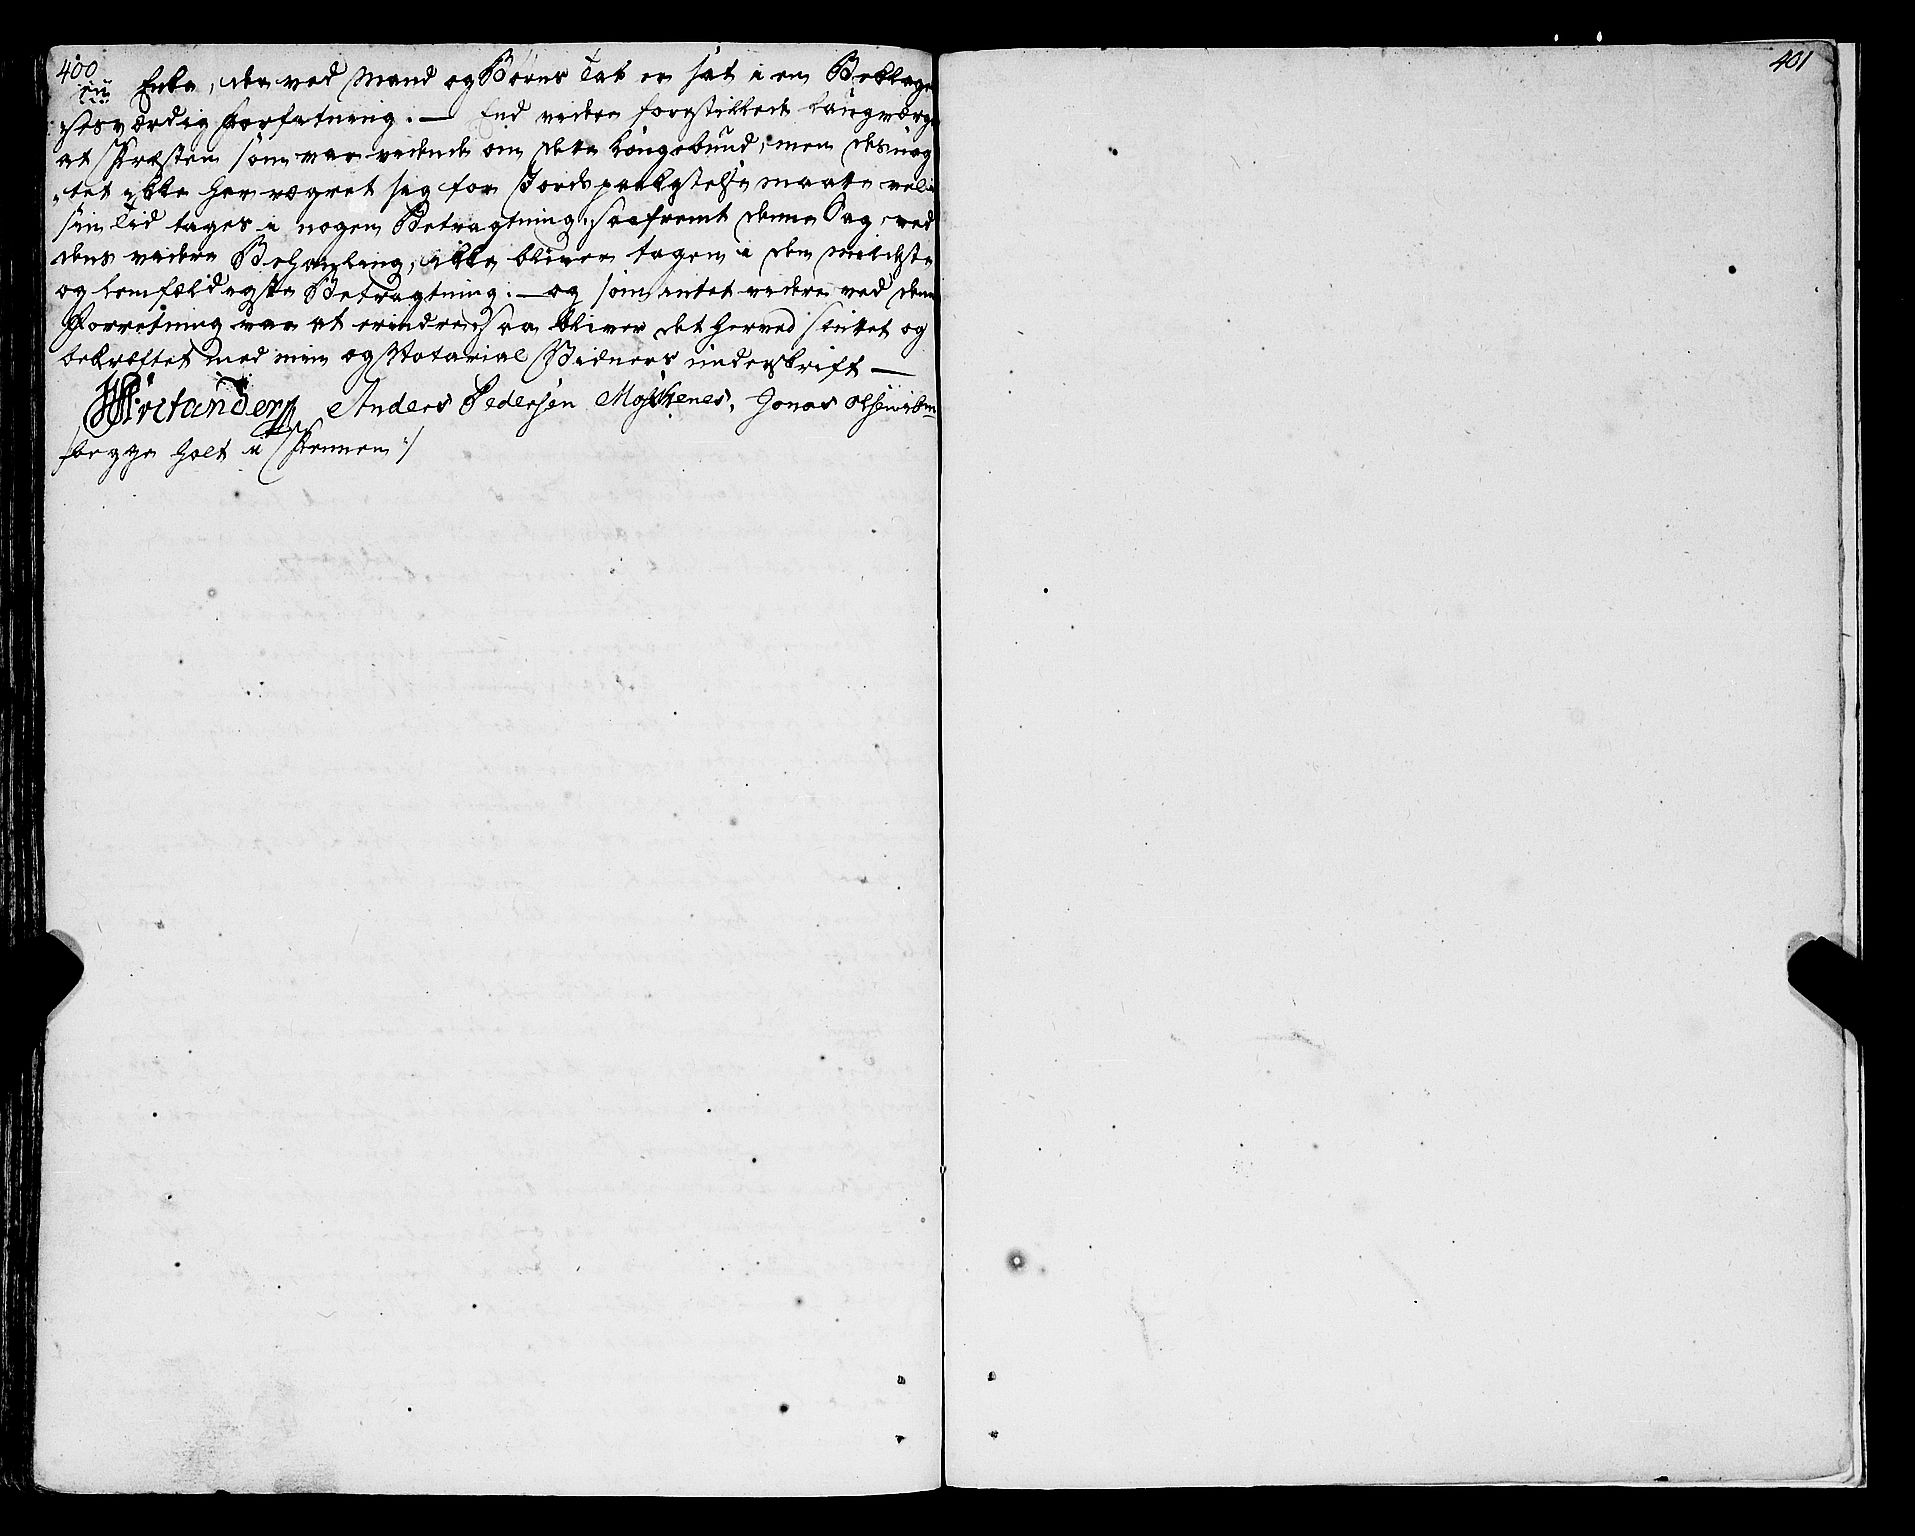 400
en Enke, der ved Mand og Børns Tab er sat i en Beklagel
sesværdig Forfatning. — End videre forestillede Laugværge
at Præsten som var vidende om dette Longebund, men desuag
tet ikke har vægret sig for Jords paakastelse maatte vel i
sin Tid tages i nogen Betragtning, saafremt denne Sag ved
dens videre Behandling, ikke bliver tagen i den mildeste
og lemfældigste Betragtning. — og som intet videre ved denne
Forretning var at erindre, saa bliver det herved sluttet og
bekræftet med min og Notarial Vidners underskrift —
Anders Pedersen Moskenes, Jonas Olsen
begge holt i Pennen /
401